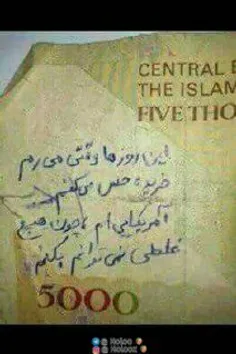 CENTRAL B
THE ISLAM
FIVE THO
این روزها وقتی می رم
خرید حس می کنم
آمریکایی ام چون هیچ
غلطی نمی توانم بکنم
5000
@ Holoo
@ Holoox